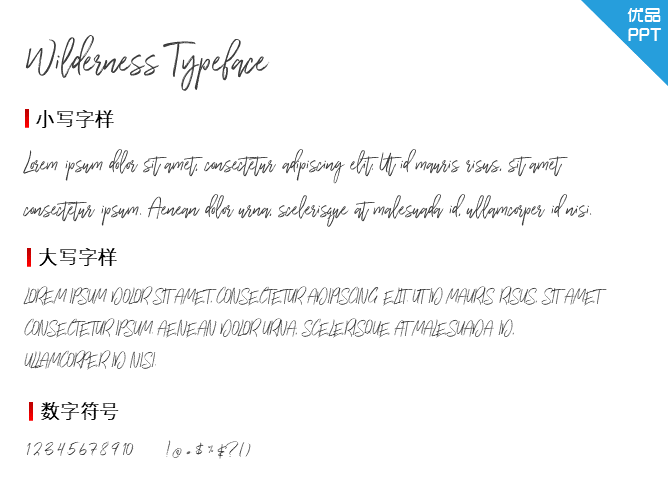 优品
PPT
Wilderness Typeface
小写字样
Lorem ipsum dolor sit amet, consectetur adipiscing elit. Ut id mauris risus, sit amet
consectetur ipsum. Aenean dolor urna, scelerisque at malesuada id, ullamcorper id nisi.
大写字样
LOREM IPSUM DOLOR SIT AMET, CONSECTETUR ADIPISCING ELIT. UT ID MAURIS RISUS, SIT AMET
CONSECTETUR IPSUM. AENEAN DOLOR URNA, SCELERISQUE AT MALESUADA ID,
ULLAMCORPER ID NISI.
数字符号
12345678910 !@#$%&?()